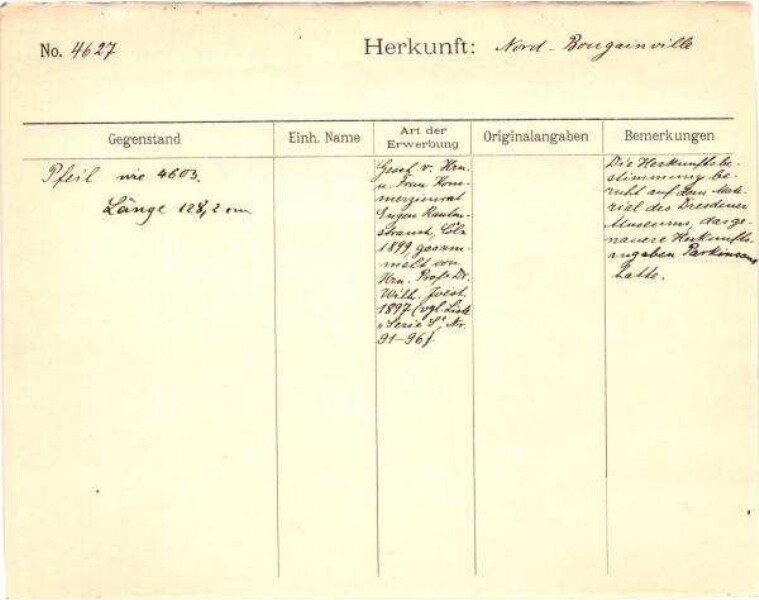 No. 4627
Herkunft: Nord-Bougainville
Gegenstand
Einh. Name
Art der
Erwerbung
Originalangaben
Bemerkungen
Pfeil wie 4603.
Länge 128,2 cm
Gesch. v. Hrn.
u. Frau Kom-
merzienrat
Eugen Rauten-
strauch, Cöln
1899, gesam-
melt von
Hrn. Prof. Dr.
Wilh. Joest
1897 (vgl. Liste
"Serie S", Nr.
91-96).
Die Herkunftsbe-
stimmung be-
ruht auf dem Mate-
rial des Dresdener
Museums, das ge-
nauere Herkunfts-
angaben Parkinsons
hatte.